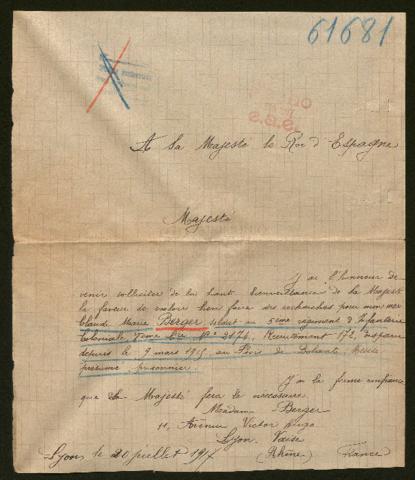 61681
A Sa Majesté le Roi d'Espagne
Majesté
J'ai l'honneur de
venir solliciter de la haute bienveillance de la Majesté
la faveur de vouloir bien faire des recherches pour mon mari
Claude Marie Berger soldat au 5eme régiment d'Infanterie
Coloniale 7eme Cie No 2174, Recrutement 172, disparu
depuis le 9 mars 1915 au Bois de
présumé prisonnier.
J'ai la ferme confiance
que Sa Majesté fera le nécessaire
Madame Berger
11, Avenue Victor Hugo
Lyon Vaise
Lyon, le 20 juillet 191 (Rhône) France